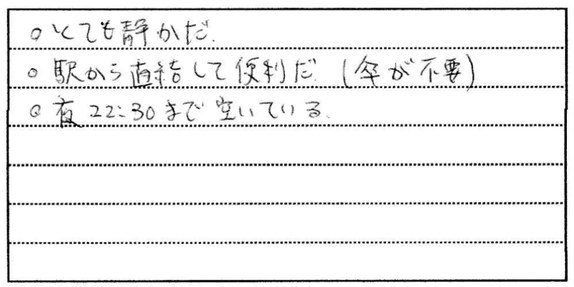 ○とても静かだ.
○駅から直結して便利だ.(傘が不要)
○夜22:30まで空いている.